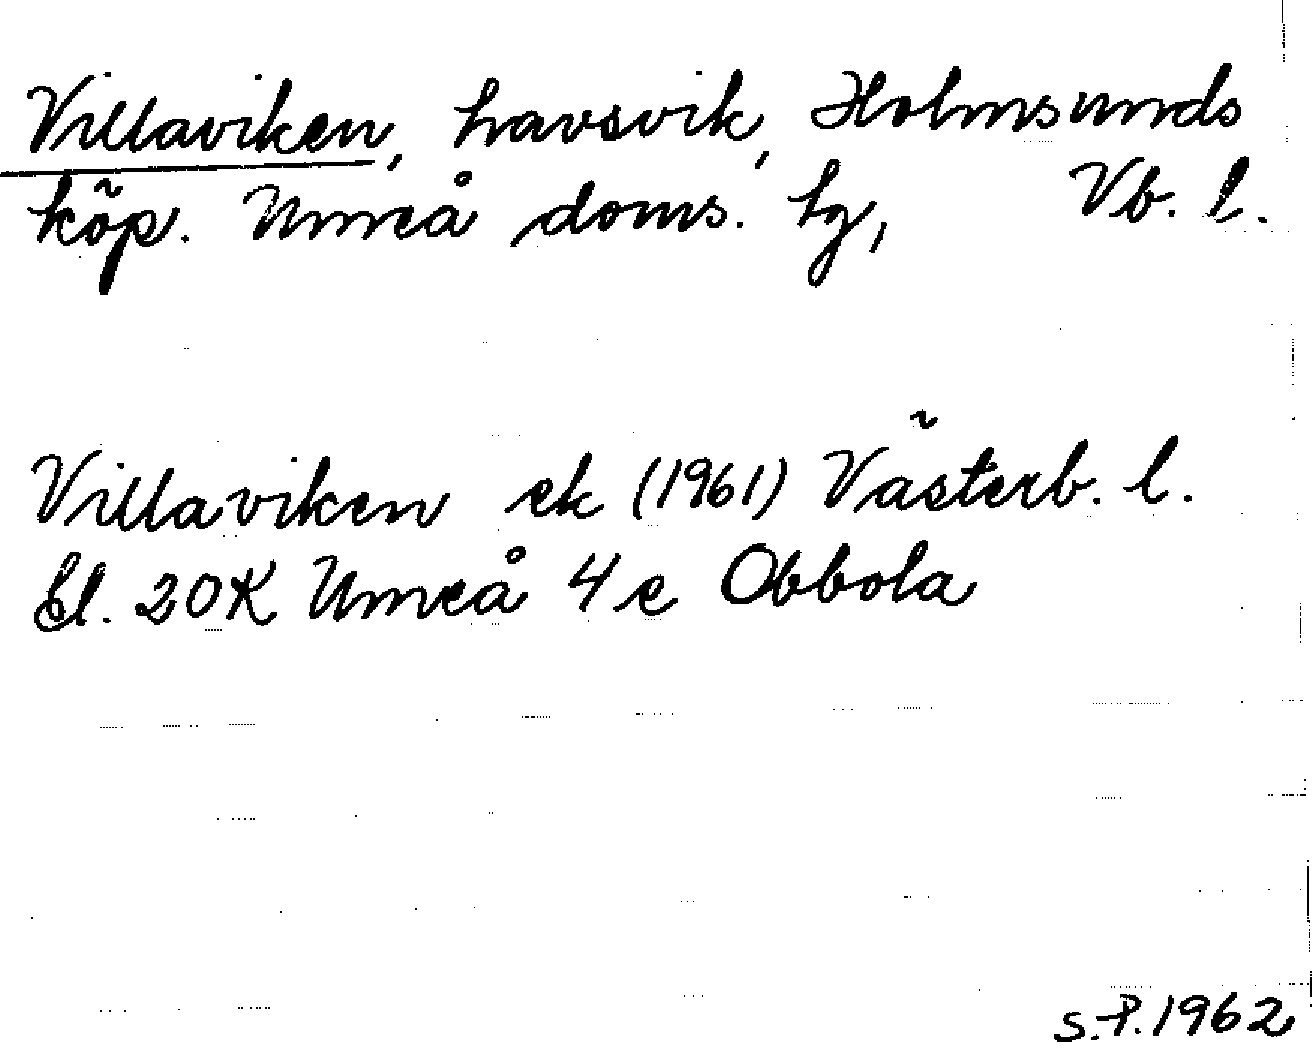 Villaviken, havsvik, Holmsunds
köp. Umeå doms. hg, Vb. l.
Villaviken ek (1961) Västerb. l.
Bl. 20K Umeå 4e Obbola
S.P. 1962